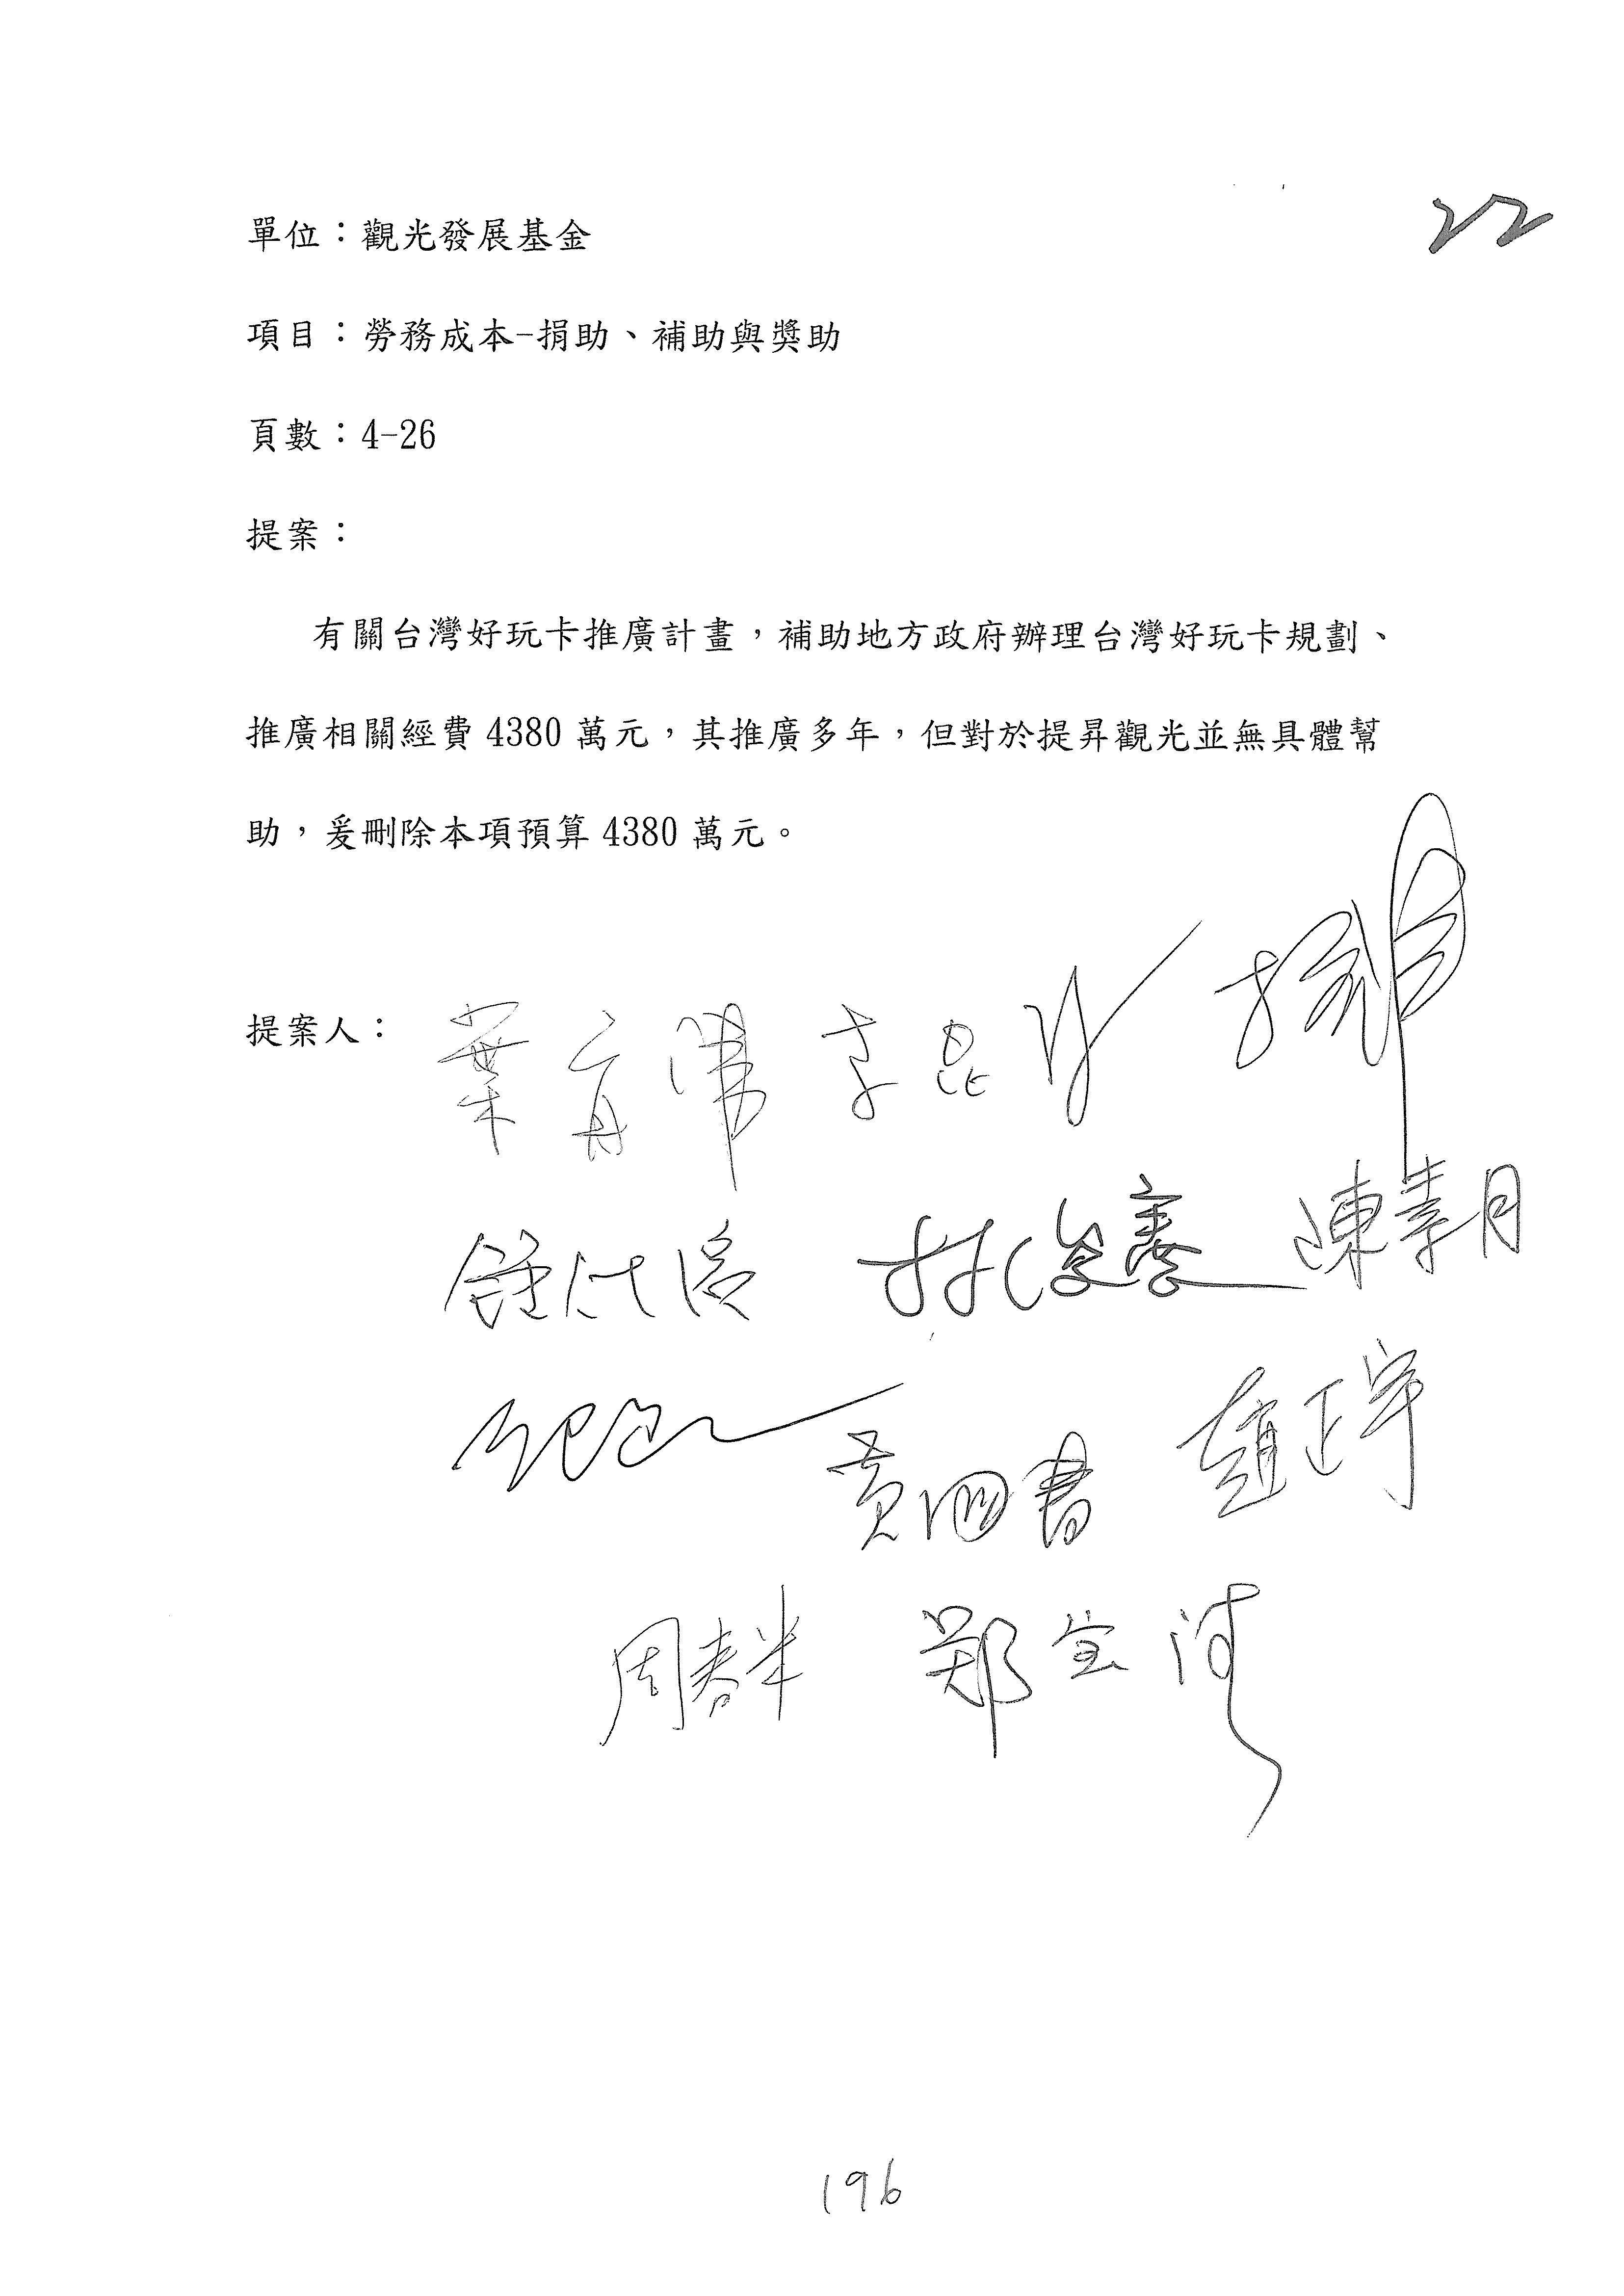 22
單位：觀光發展基金
項目：勞務成本-捐助、補助與獎助
頁數：4-26
提案：
有關台灣好玩卡推廣計畫，補助地方政府辦理台灣好玩卡規劃、
推廣相關經費 4380 萬元，其推廣多年，但對於提昇觀光並無具體幫
助，爰刪除本項預算 4380 萬元。
提案人：
葉 李昆
林俊憲 陳素月
黃國書 趙正宇
周春米 鄭宝清
196